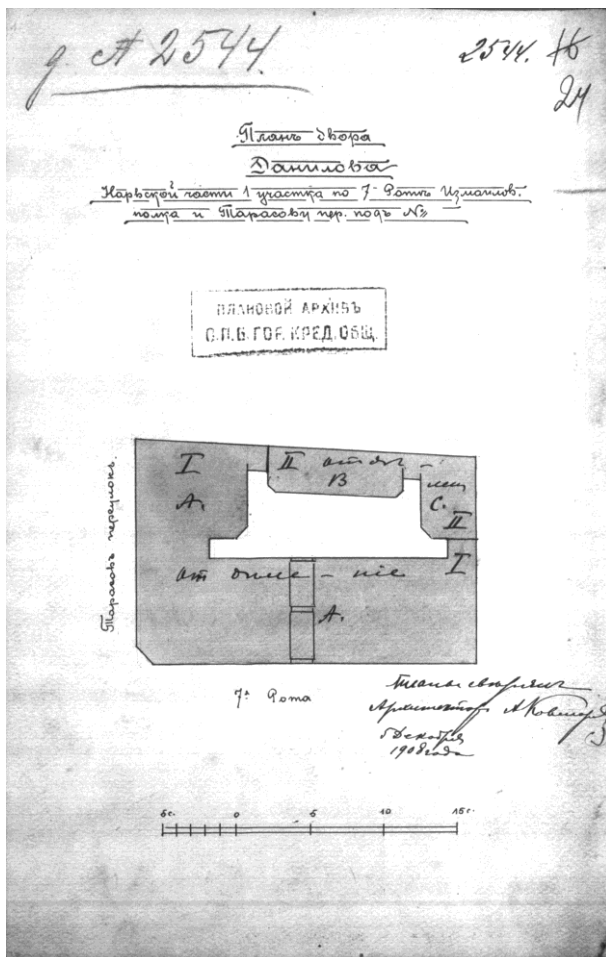 д А 2544.
2544. 16
24
Планъ двора
Данилова
Нарвской части 1го участка по 7й Ротѣ Измайлов.
полка и Тарасову пер. подъ №
ПЛАНОВОЙ АРХИВЪ
С.П.Б. ГОР. КРЕД. ОБЩ.
Тарасовъ переулокъ.
I
II
A.
B
C.
II
I
от дѣле - ніе
A.
7я Рота
Архитекторъ
5 Декабря
1908 года
5 с. 0 5 10 15 с.